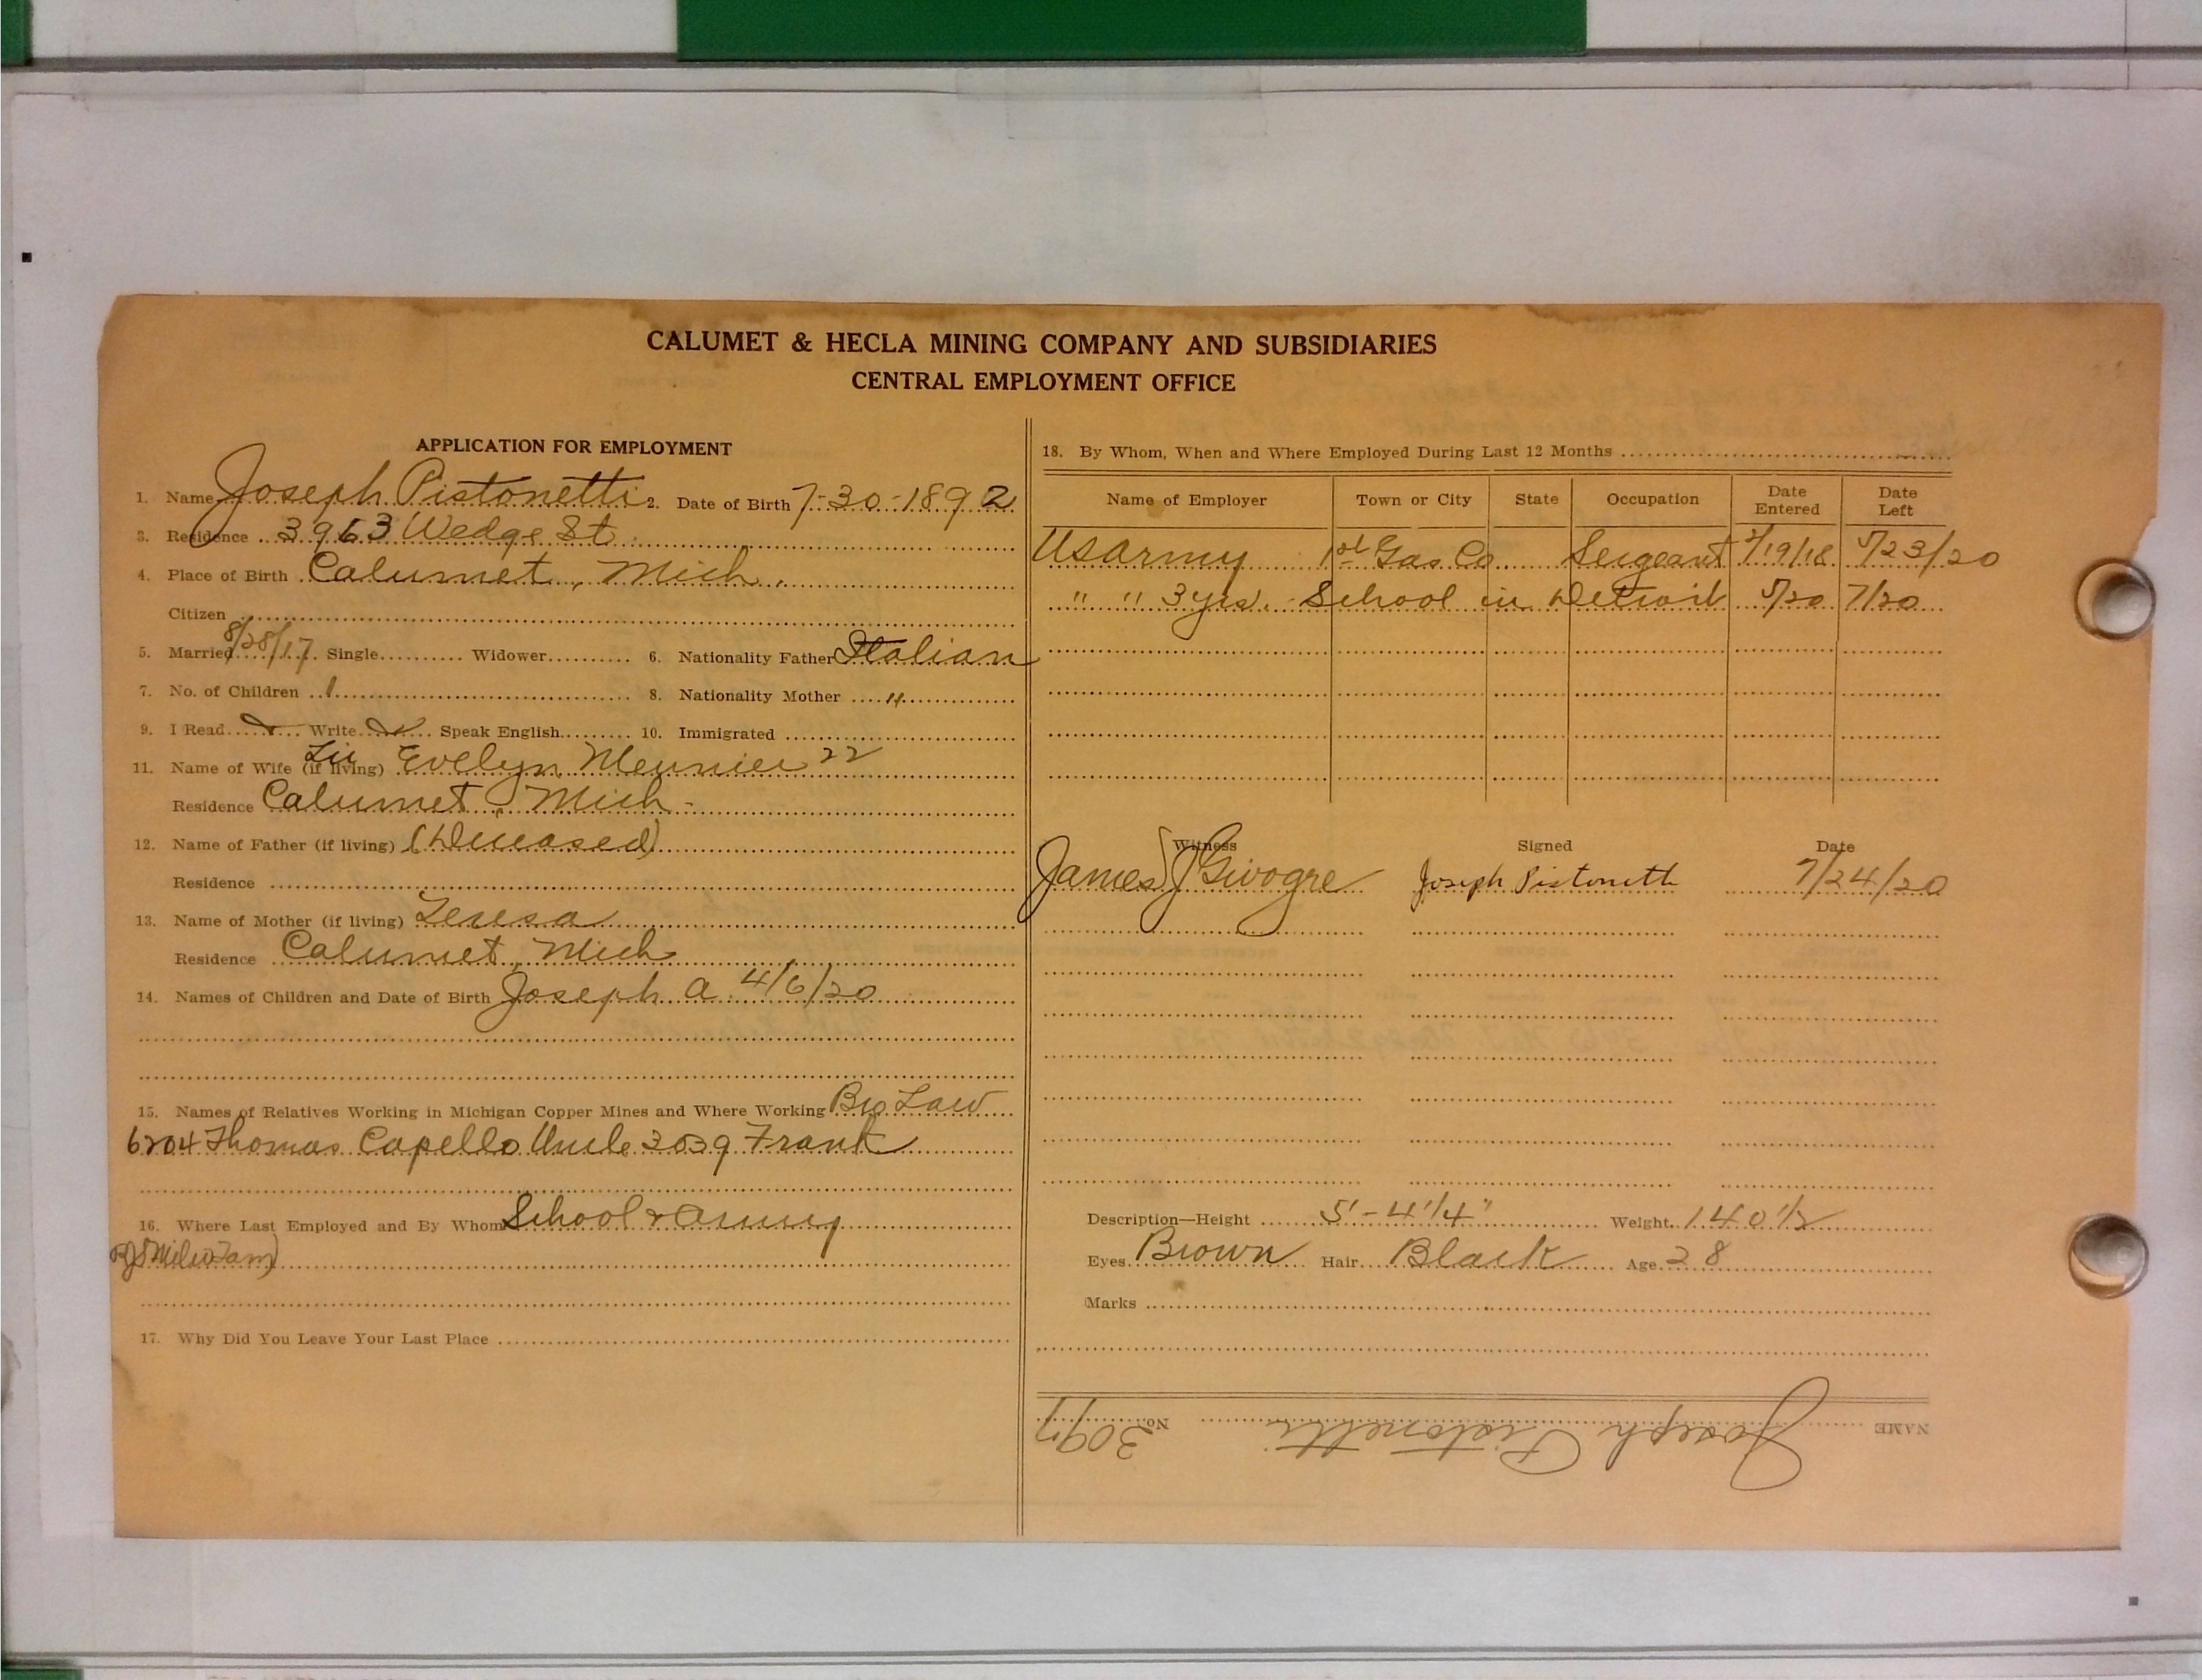 CALUMET & HECLA MINING COMPANY AND SUBSIDIARIES
CENTRAL EMPLOYMENT OFFICE
APPLICATION FOR EMPLOYMENT
1. Name Joseph Pistonetti 2. Date of Birth 7-30-1892
3. Residence 3963 Wedge St.
4. Place of Birth Calumet, Mich.
Citizen
5. Married 8/28/17 Single Widower 6. Nationality Father Italian
7. No. of Children 1 8. Nationality Mother "
9. I Read Write Speak English 10. Immigrated
11. Name of Wife (if living) Liv Evelyn Meunier 22
Residence Calumet, Mich-
12. Name of Father (if living) (Deceased)
Residence
13. Name of Mother (if living) Teresa
Residence Calumet, Mich
14. Names of Children and Date of Birth Joseph A. 4/6/20
15. Names of Relatives Working in Michigan Copper Mines and Where Working Bro Law
6204 Thomas Capello Uncle 3039 Frank
16. Where Last Employed and By Whom School & Army
17. Why Did You Leave Your Last Place
18. By Whom, When and Where Employed During Last 12 Months
Name of Employer Town or City State Occupation Date Entered Date Left
US Army 1st Gas Co Sergeant 2/19/18 5/23/20
" " 3 yrs. School in Detroit 5/20 7/20
Witness Signed Date
James J Givogre Joseph Pistonetti 7/24/20
Description—Height 5'-4 1/4" Weight 140 1/2
Eyes Brown Hair Black Age 28
Marks
NAME Joseph Pistonetti No. 3097